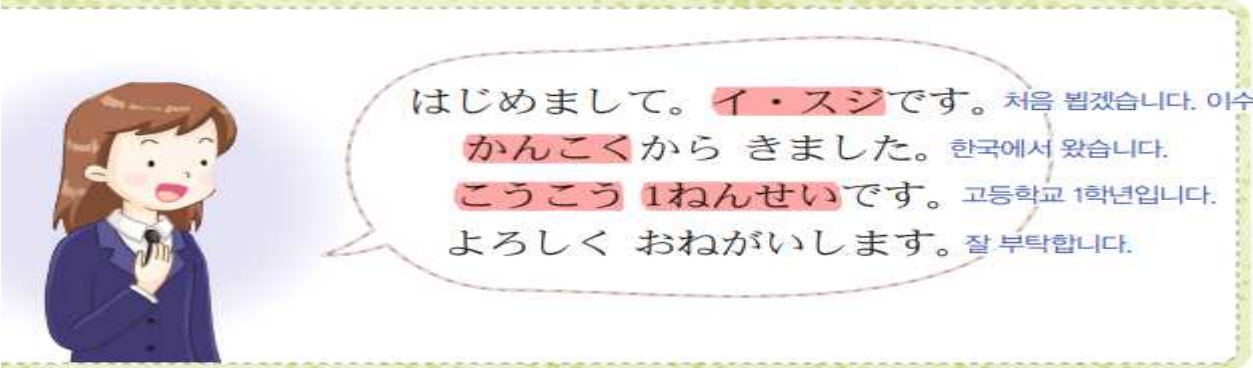 はじめまして。イ・スジです。처음 뵙겠습니다. 이수
かんこくから きました。한국에서 왔습니다.
こうこう 1ねんせいです。고등학교 1학년입니다.
よろしく おねがいします。잘 부탁합니다.